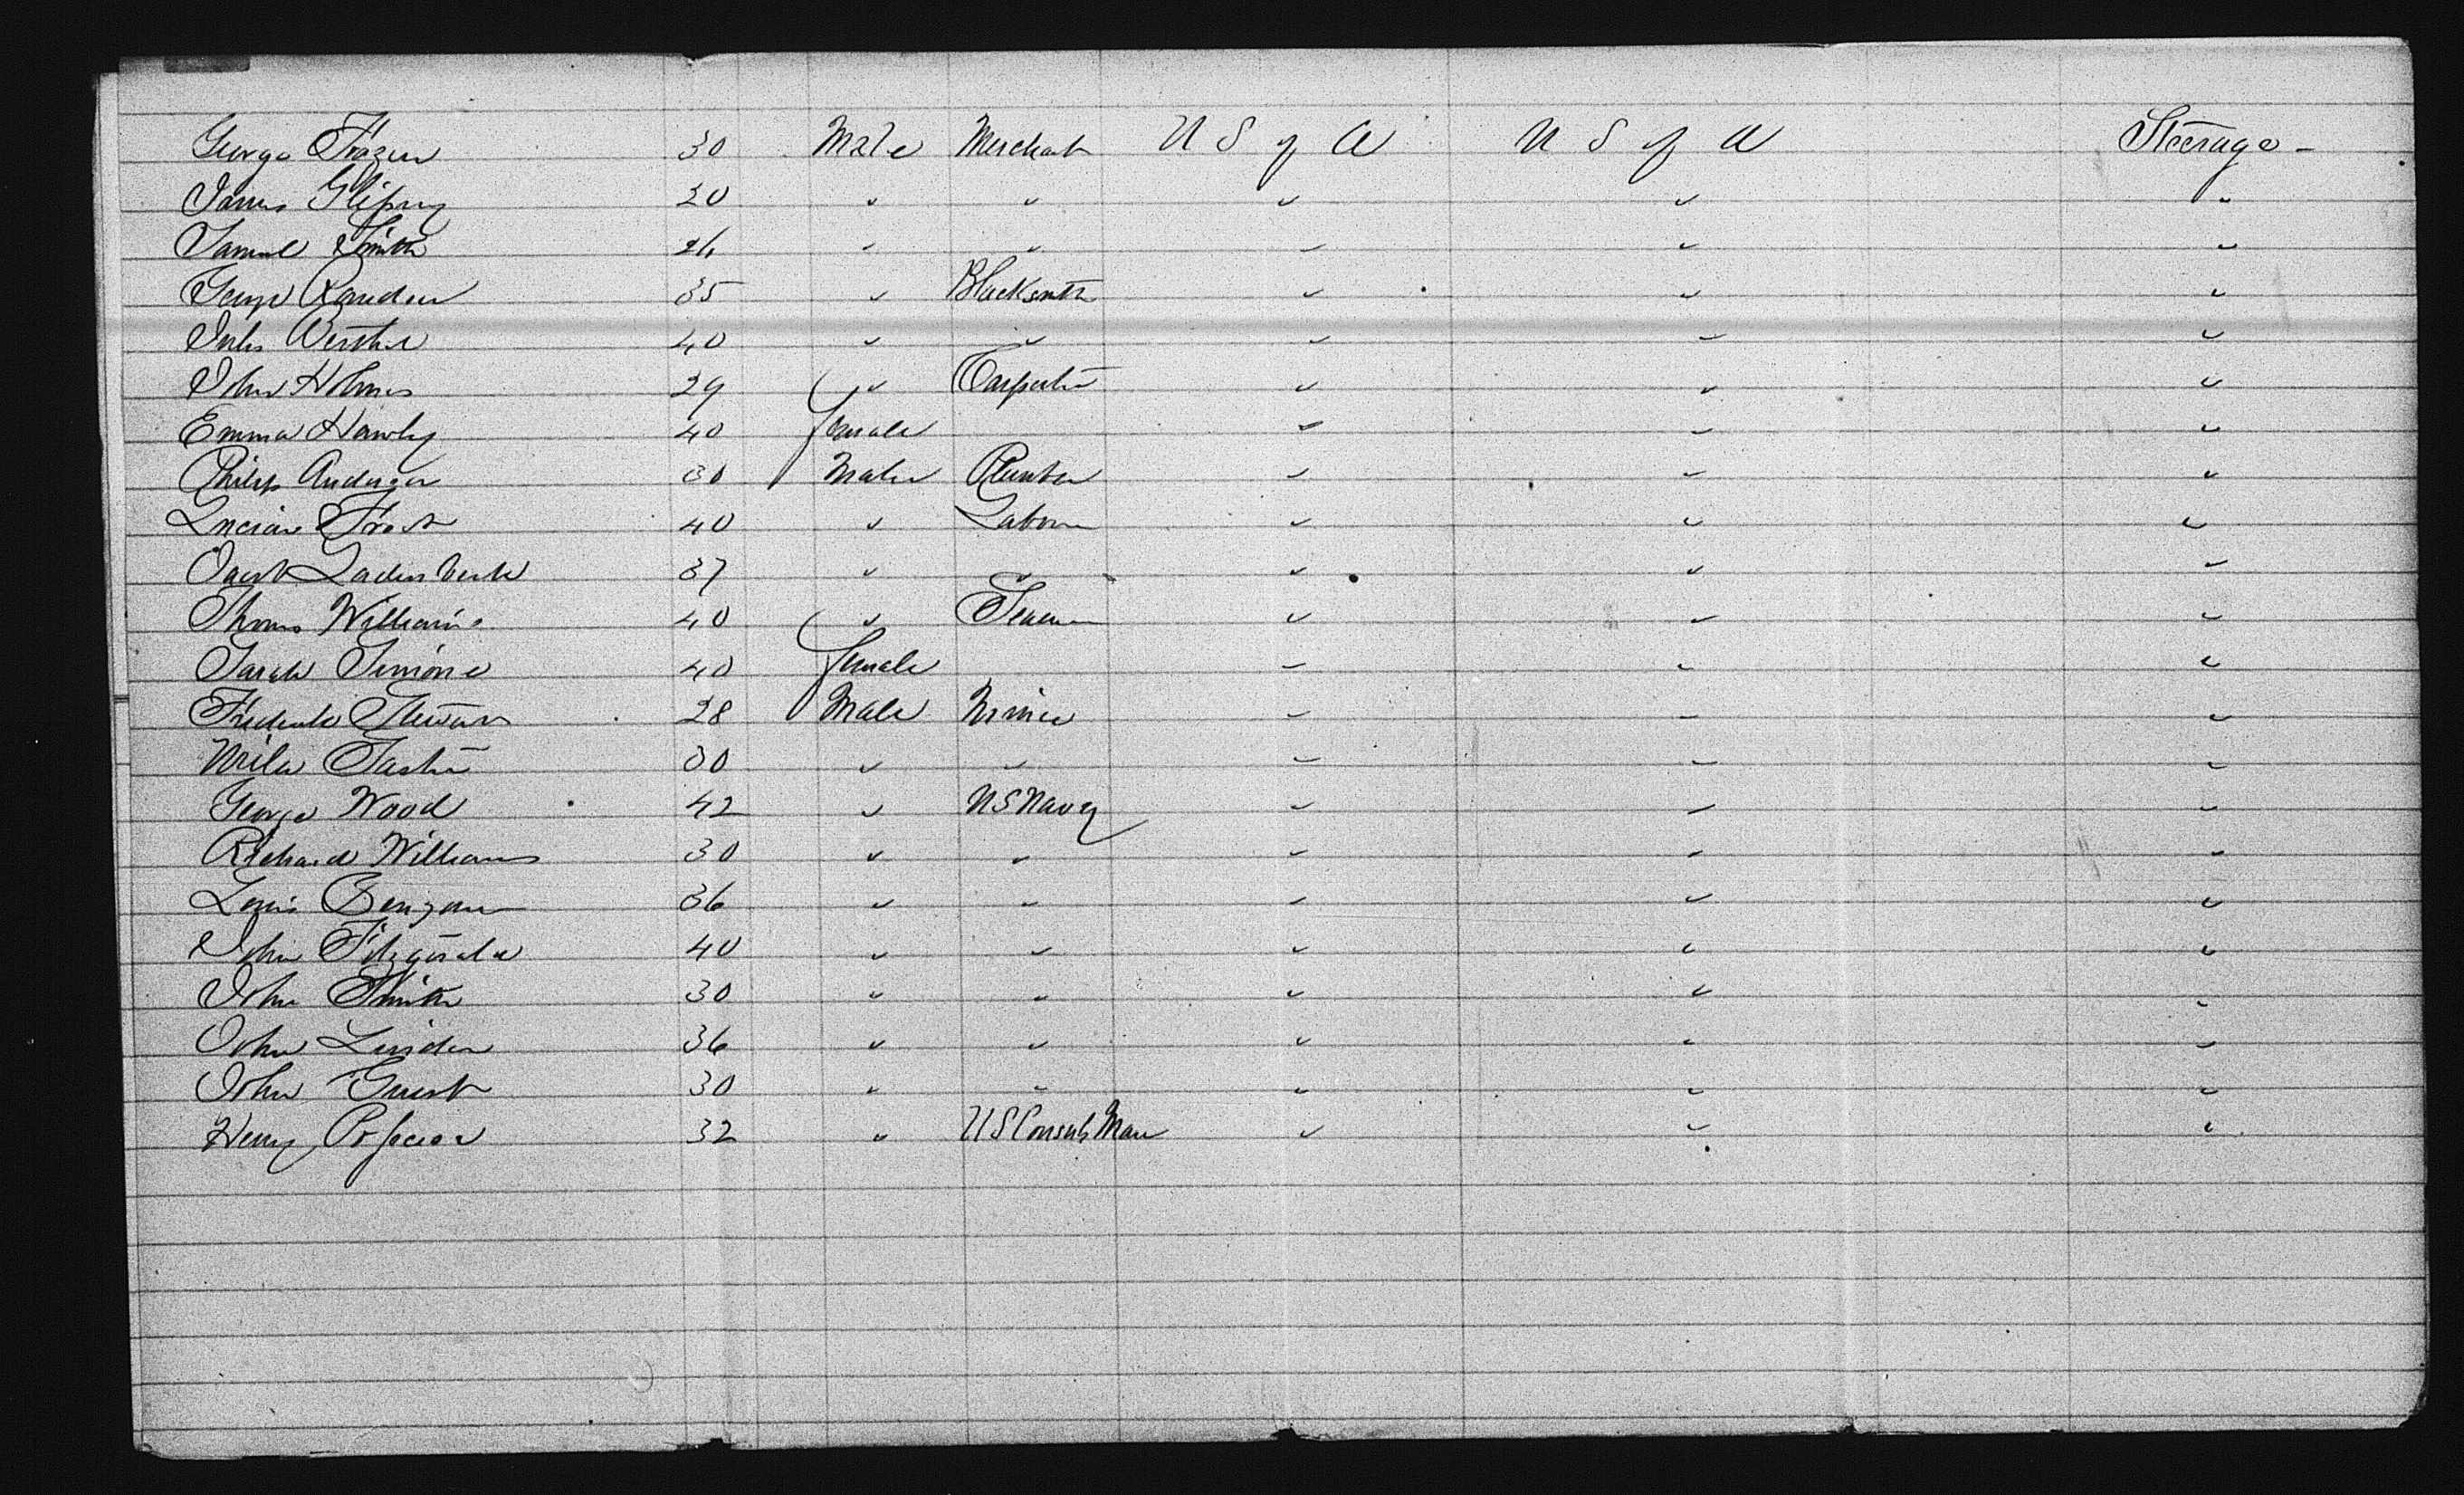 George Frazer 30 Male Merchat U S of A U S of A Steerage -
James 20 " " " " "
Samuel Smith 26 " " " " "
George 35 " Blacksmith " " "
Jules 40 " " " " "
John Holmes 29 " Carpenter " " "
Emma Hawley 40 female " " "
Philip 30 Male " " "
Lucian Frost 40 " Labor " " "
Jacob 37 " " " " "
Thomas Williams 40 " Seaman " " "
Sarah Simons 40 female " " "
Frederick Stewart 28 Male Miner " " "
30 " " " " "
George Wood 42 " U S Navy " " "
Richard Williams 30 " " " " "
Louis 36 " " " " "
John Fitzgerald 40 " " " " "
John Smith 30 " " " " "
John Linden 36 " " " " "
John Guest 30 " " " " "
Henry 32 " U S Consuls Man " " "